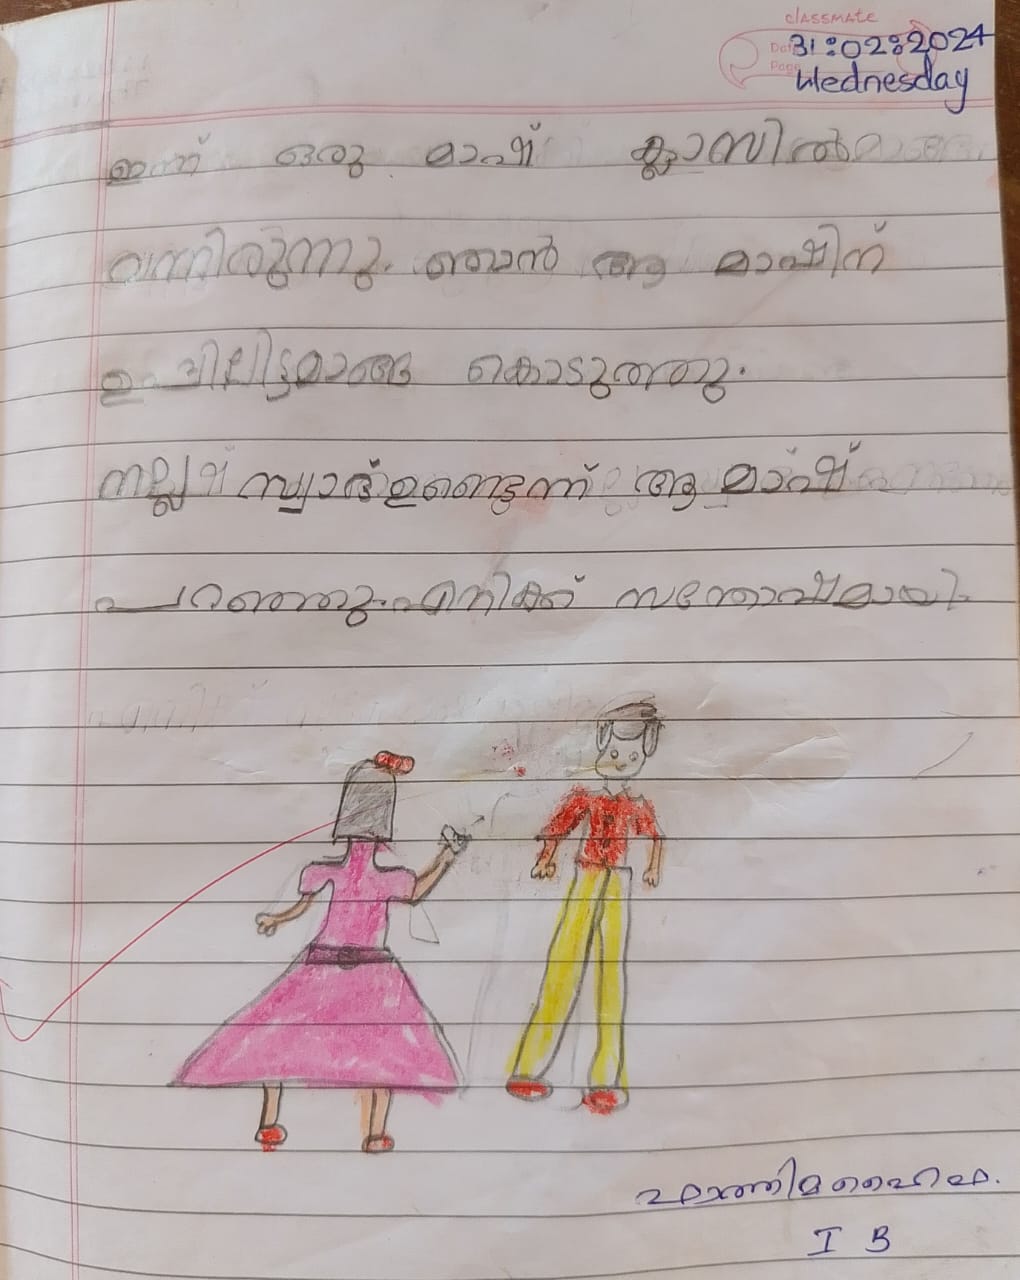 classmate
Date
Page
31:02:2024
Wednesday
ഇന്ന് ഒരു മാഷ് ക്ലാസിൽ
വന്നിരുന്നു. ഞാൻ ആ മാഷിന്
ഉപ്പിലിട്ടമാങ്ങ കൊടുത്തു.
നല്ല സ്വാദ്ഉണ്ടെന്ന് ആ മാഷ്
പറഞ്ഞു.എനിക്ക് സന്തോഷമായി.
ഫാത്തിമ
I B